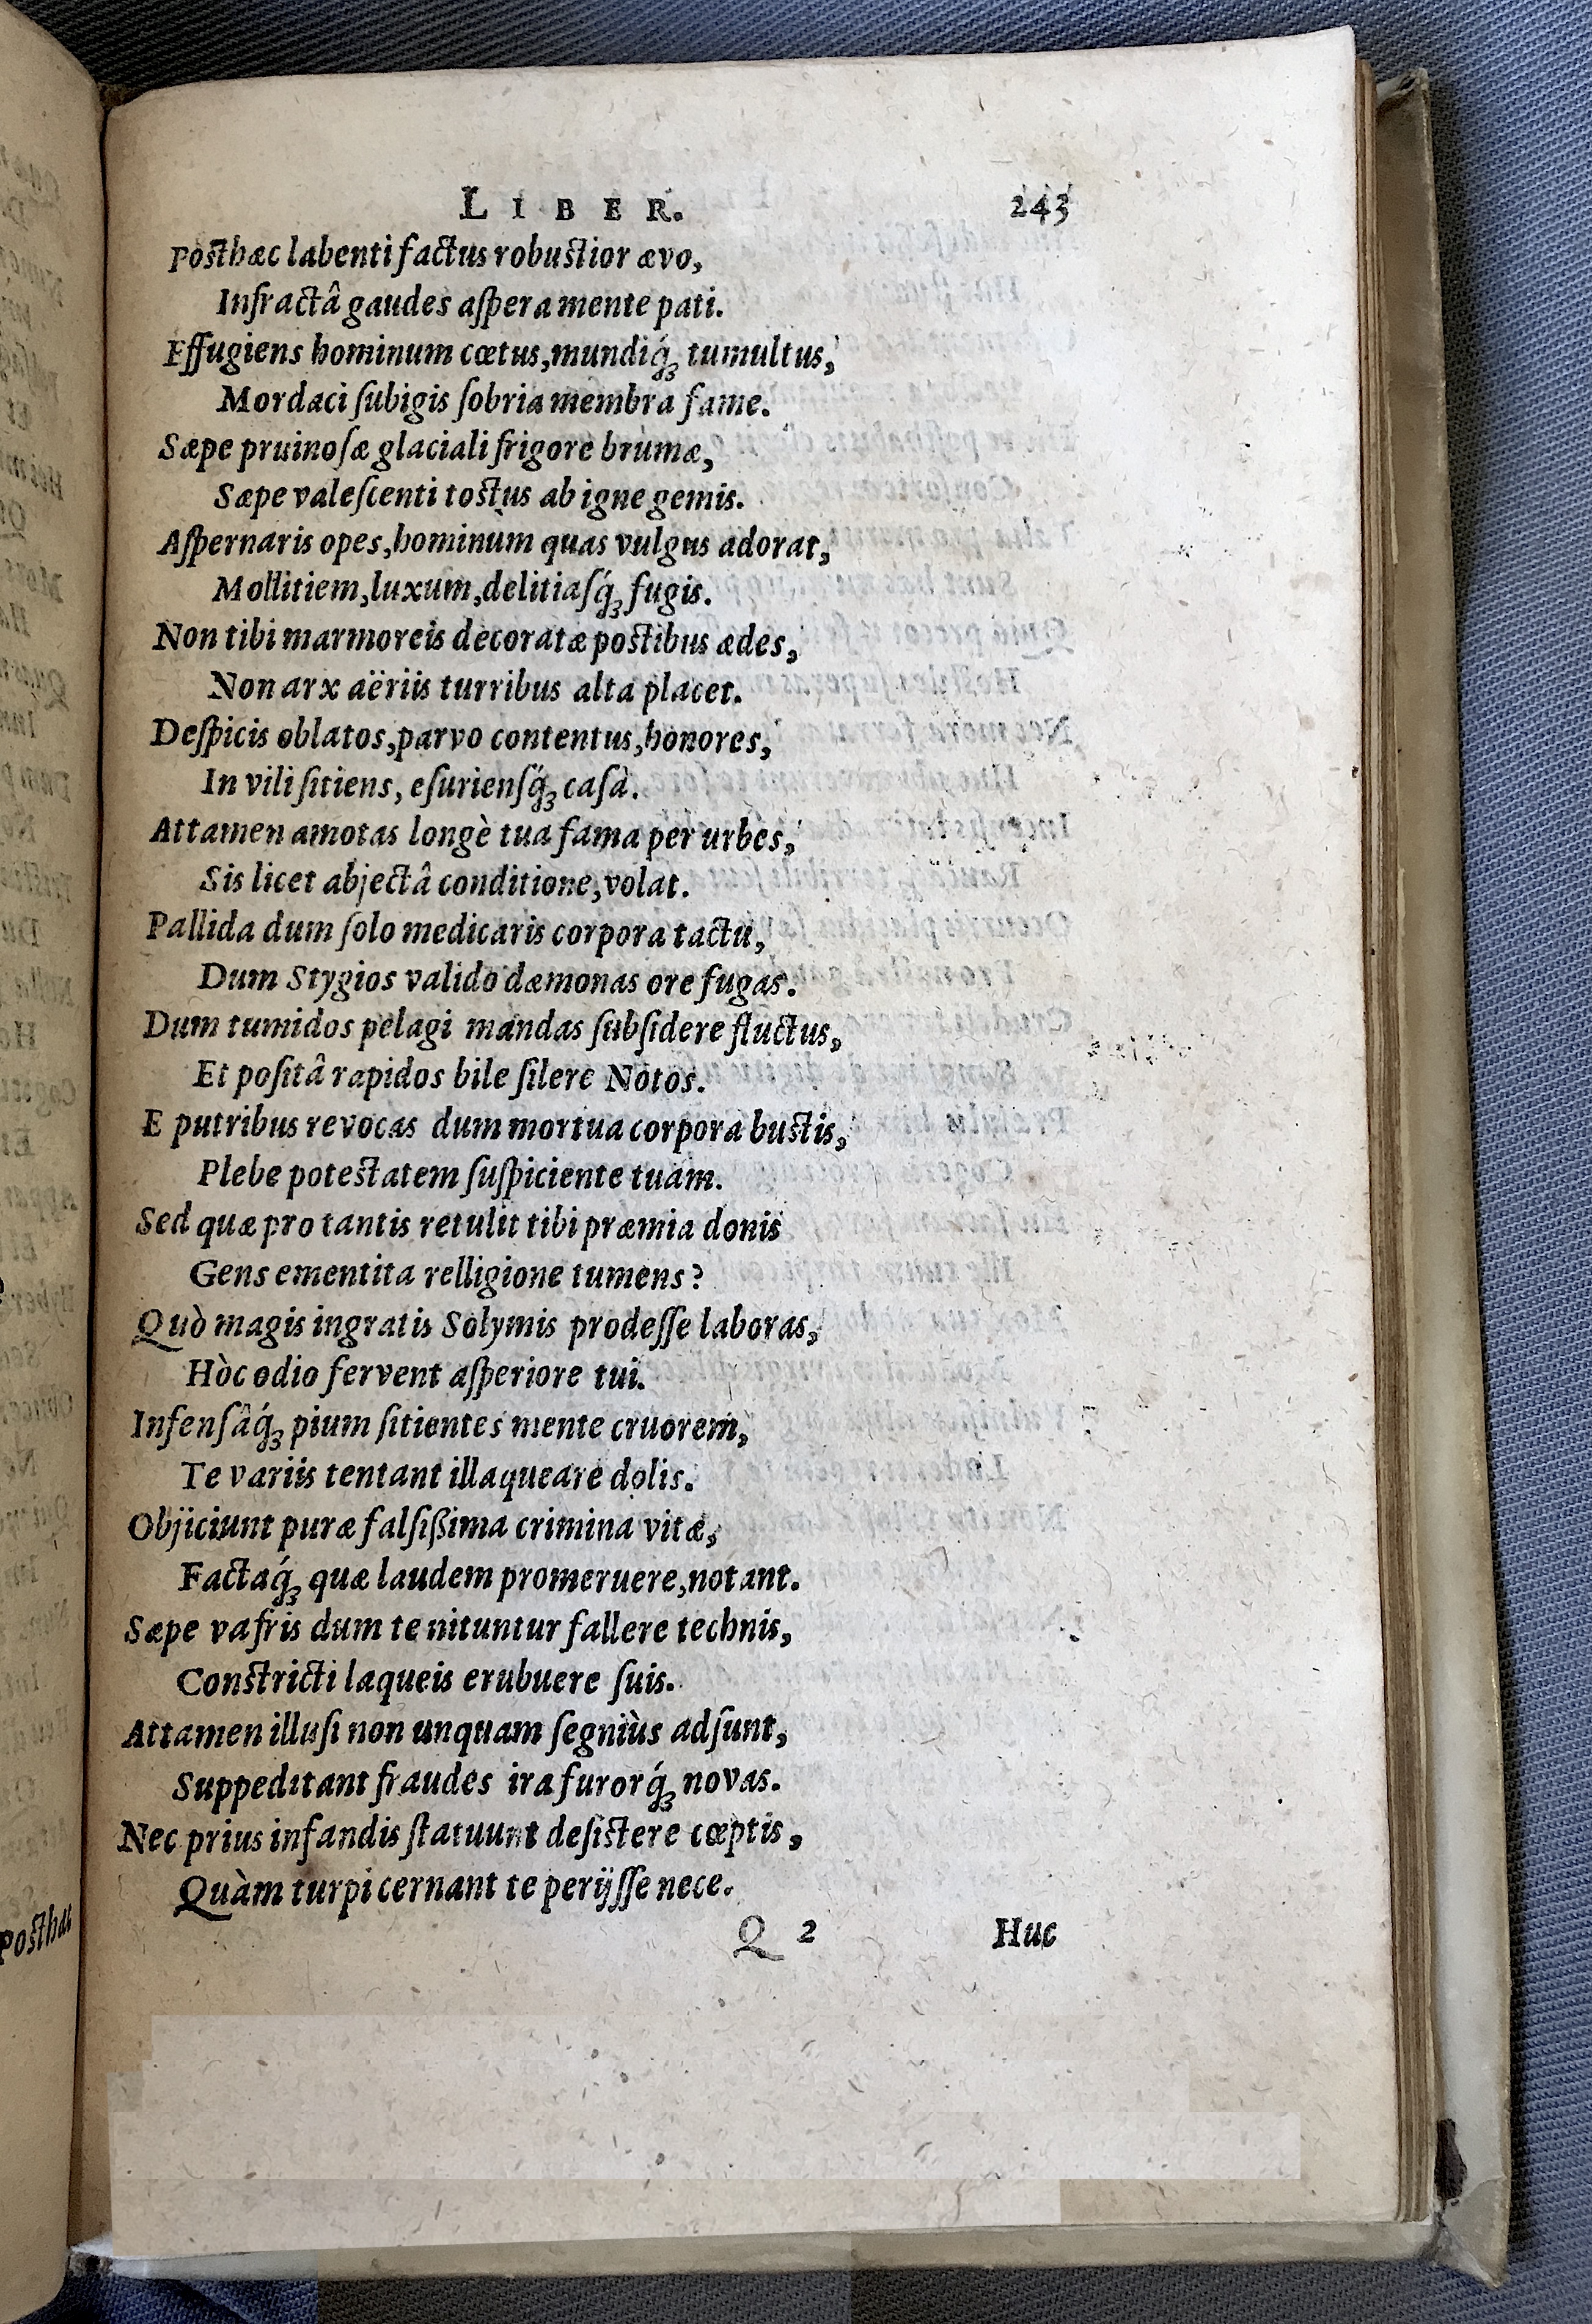 LIBER. 243
Posthæc labenti factus robustior ævo,
Infractâ gaudes aſpera mente pati.
Effugiens hominum cœtus,mundiq́ꝫ tumultus,
Mordaci ſubigis ſobria membra fame.
Sæpe pruinoſæ glaciali frigore brumæ,
Sæpe valeſcenti tostus ab igne gemis.
Aſpernaris opes,hominùm quas vulgus adorat,
Mollitiem,luxum,delitiaſq́ꝫ fugis.
Non tibi marmoreis decoratæ postibus ædes,
Non arx aëriis turribus alta placet.
Deſpicis oblatos,parvo contentus,honores,
In vili ſitiens, eſurienſq́ꝫ caſà.
Attamen amotas longè tua fama per urbes,
Sis licet abjectâ conditione,volat.
Pallida dum ſolo medicaris corpora tactu,
Dum Stygios valido dæmonas ore fugas.
Dum tumidos pelagi mandas ſubſidere fluctus,
Et poſitâ rapidos bile ſilere Notos.
E putribus revocas dum mortua corpora bustis,
Plebe potestatem ſuſpiciente tuam.
Sed quæ pro tantis retulit tibi præmia donis
Gens ementita relligione tumens?
Quò magis ingratis Solymis prodeſſe laboras,
Hòc odio fervent aſperiore tui.
Infenſâq́ꝫ pium ſitientes mente cruorem,
Te variis tentant illaqueare dolis.
Objiciunt puræ falſißima crimina vitæ,
Factaq́ꝫ quæ laudem promeruere,notant.
Sæpe vafris dum te nituntur fallere technis,
Constricti laqueis erubuere ſuis.
Attamen illuſi non unquam ſegniùs adſunt,
Suppeditant fraudes ira furorq́ꝫ novas.
Nec prius infandis ſtatuunt deſistere cœptis,
Quàm turpi cernant te perijſſe nece.
Q 2 Huc
Posthæc